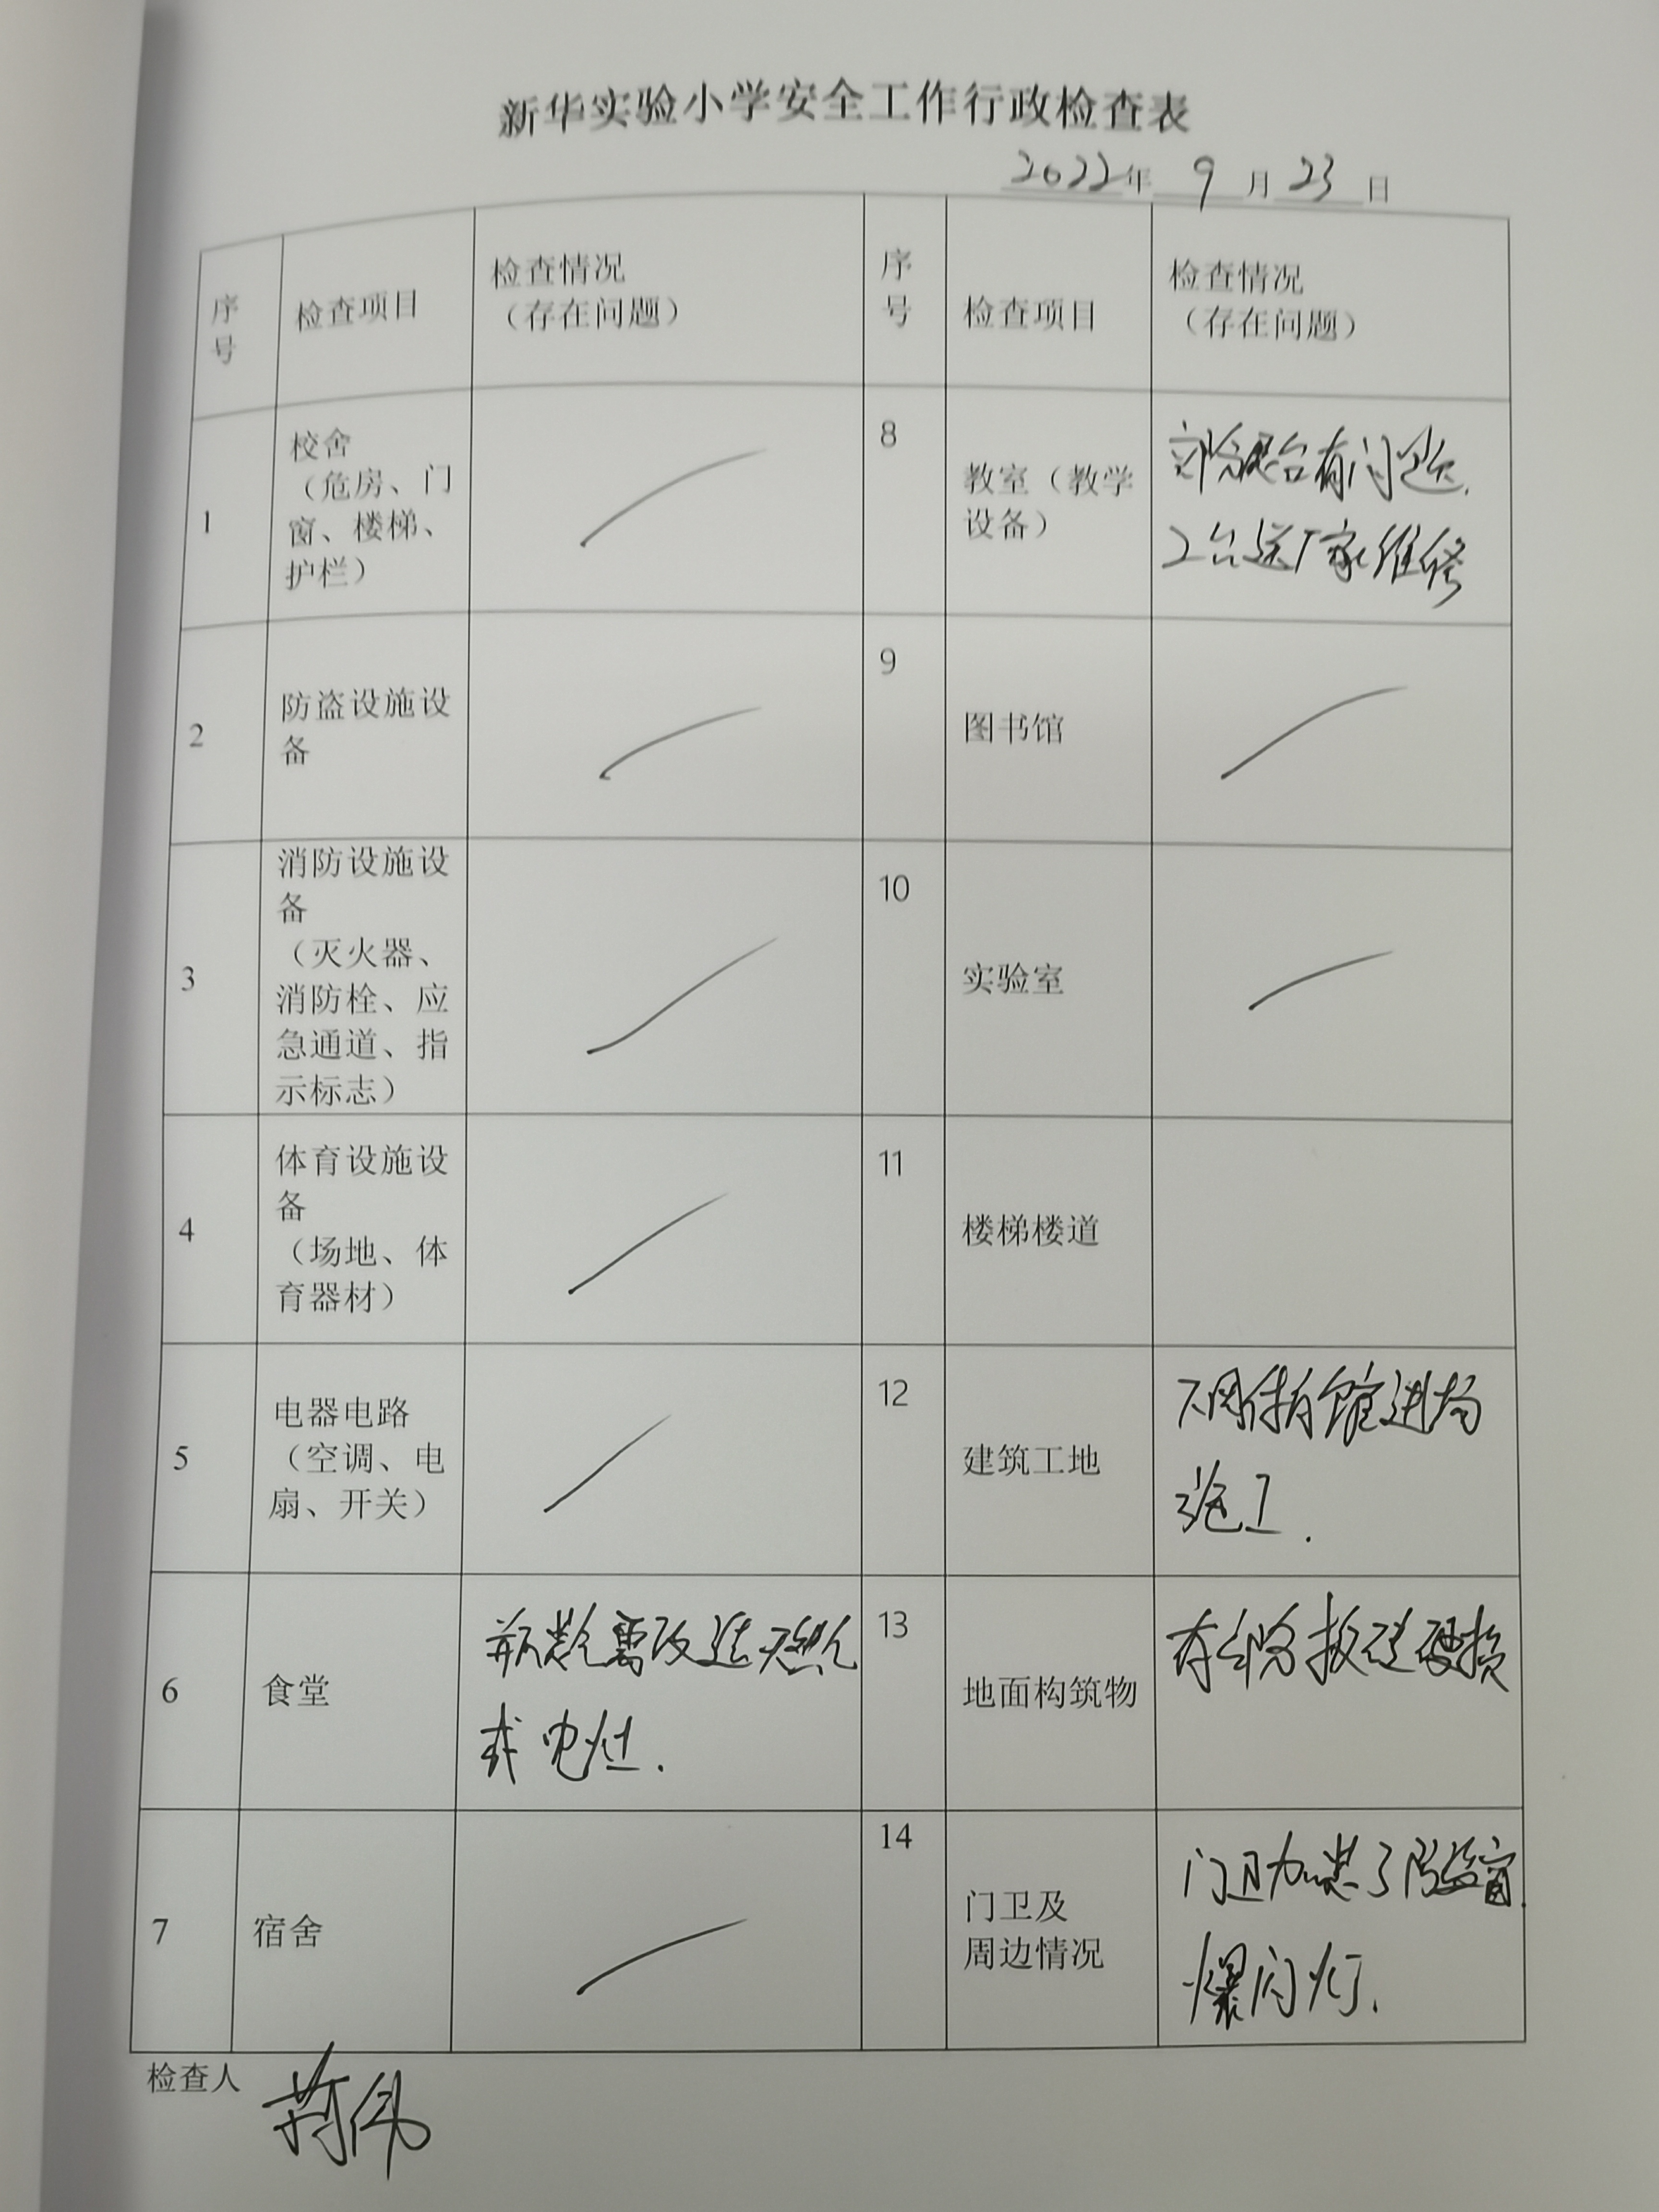 新华实验小学安全工作行政检查表
2022年 9 月 23 日
序号
检查项目
检查情况
（存在问题）
序号
检查项目
检查情况
（存在问题）
1
校舍
（危房、门
窗、楼梯、
护栏）
8
教室（教学
设备）
部分展台有问题.
2台送厂家维修
2
防盗设施设
备
9
图书馆
3
消防设施设
备
（灭火器、
消防栓、应
急通道、指
示标志）
10
实验室
4
体育设施设
备
（场地、体
育器材）
11
楼梯楼道
5
电器电路
（空调、电
扇、开关）
12
建筑工地
体育馆进场
施工.
6
食堂
需改造天然气
或电灶.
13
地面构筑物
有部分板砖破损
7
宿舍
14
门卫及
周边情况
门卫加装了防盗窗.
爆闪灯.
检查人
蒋伟